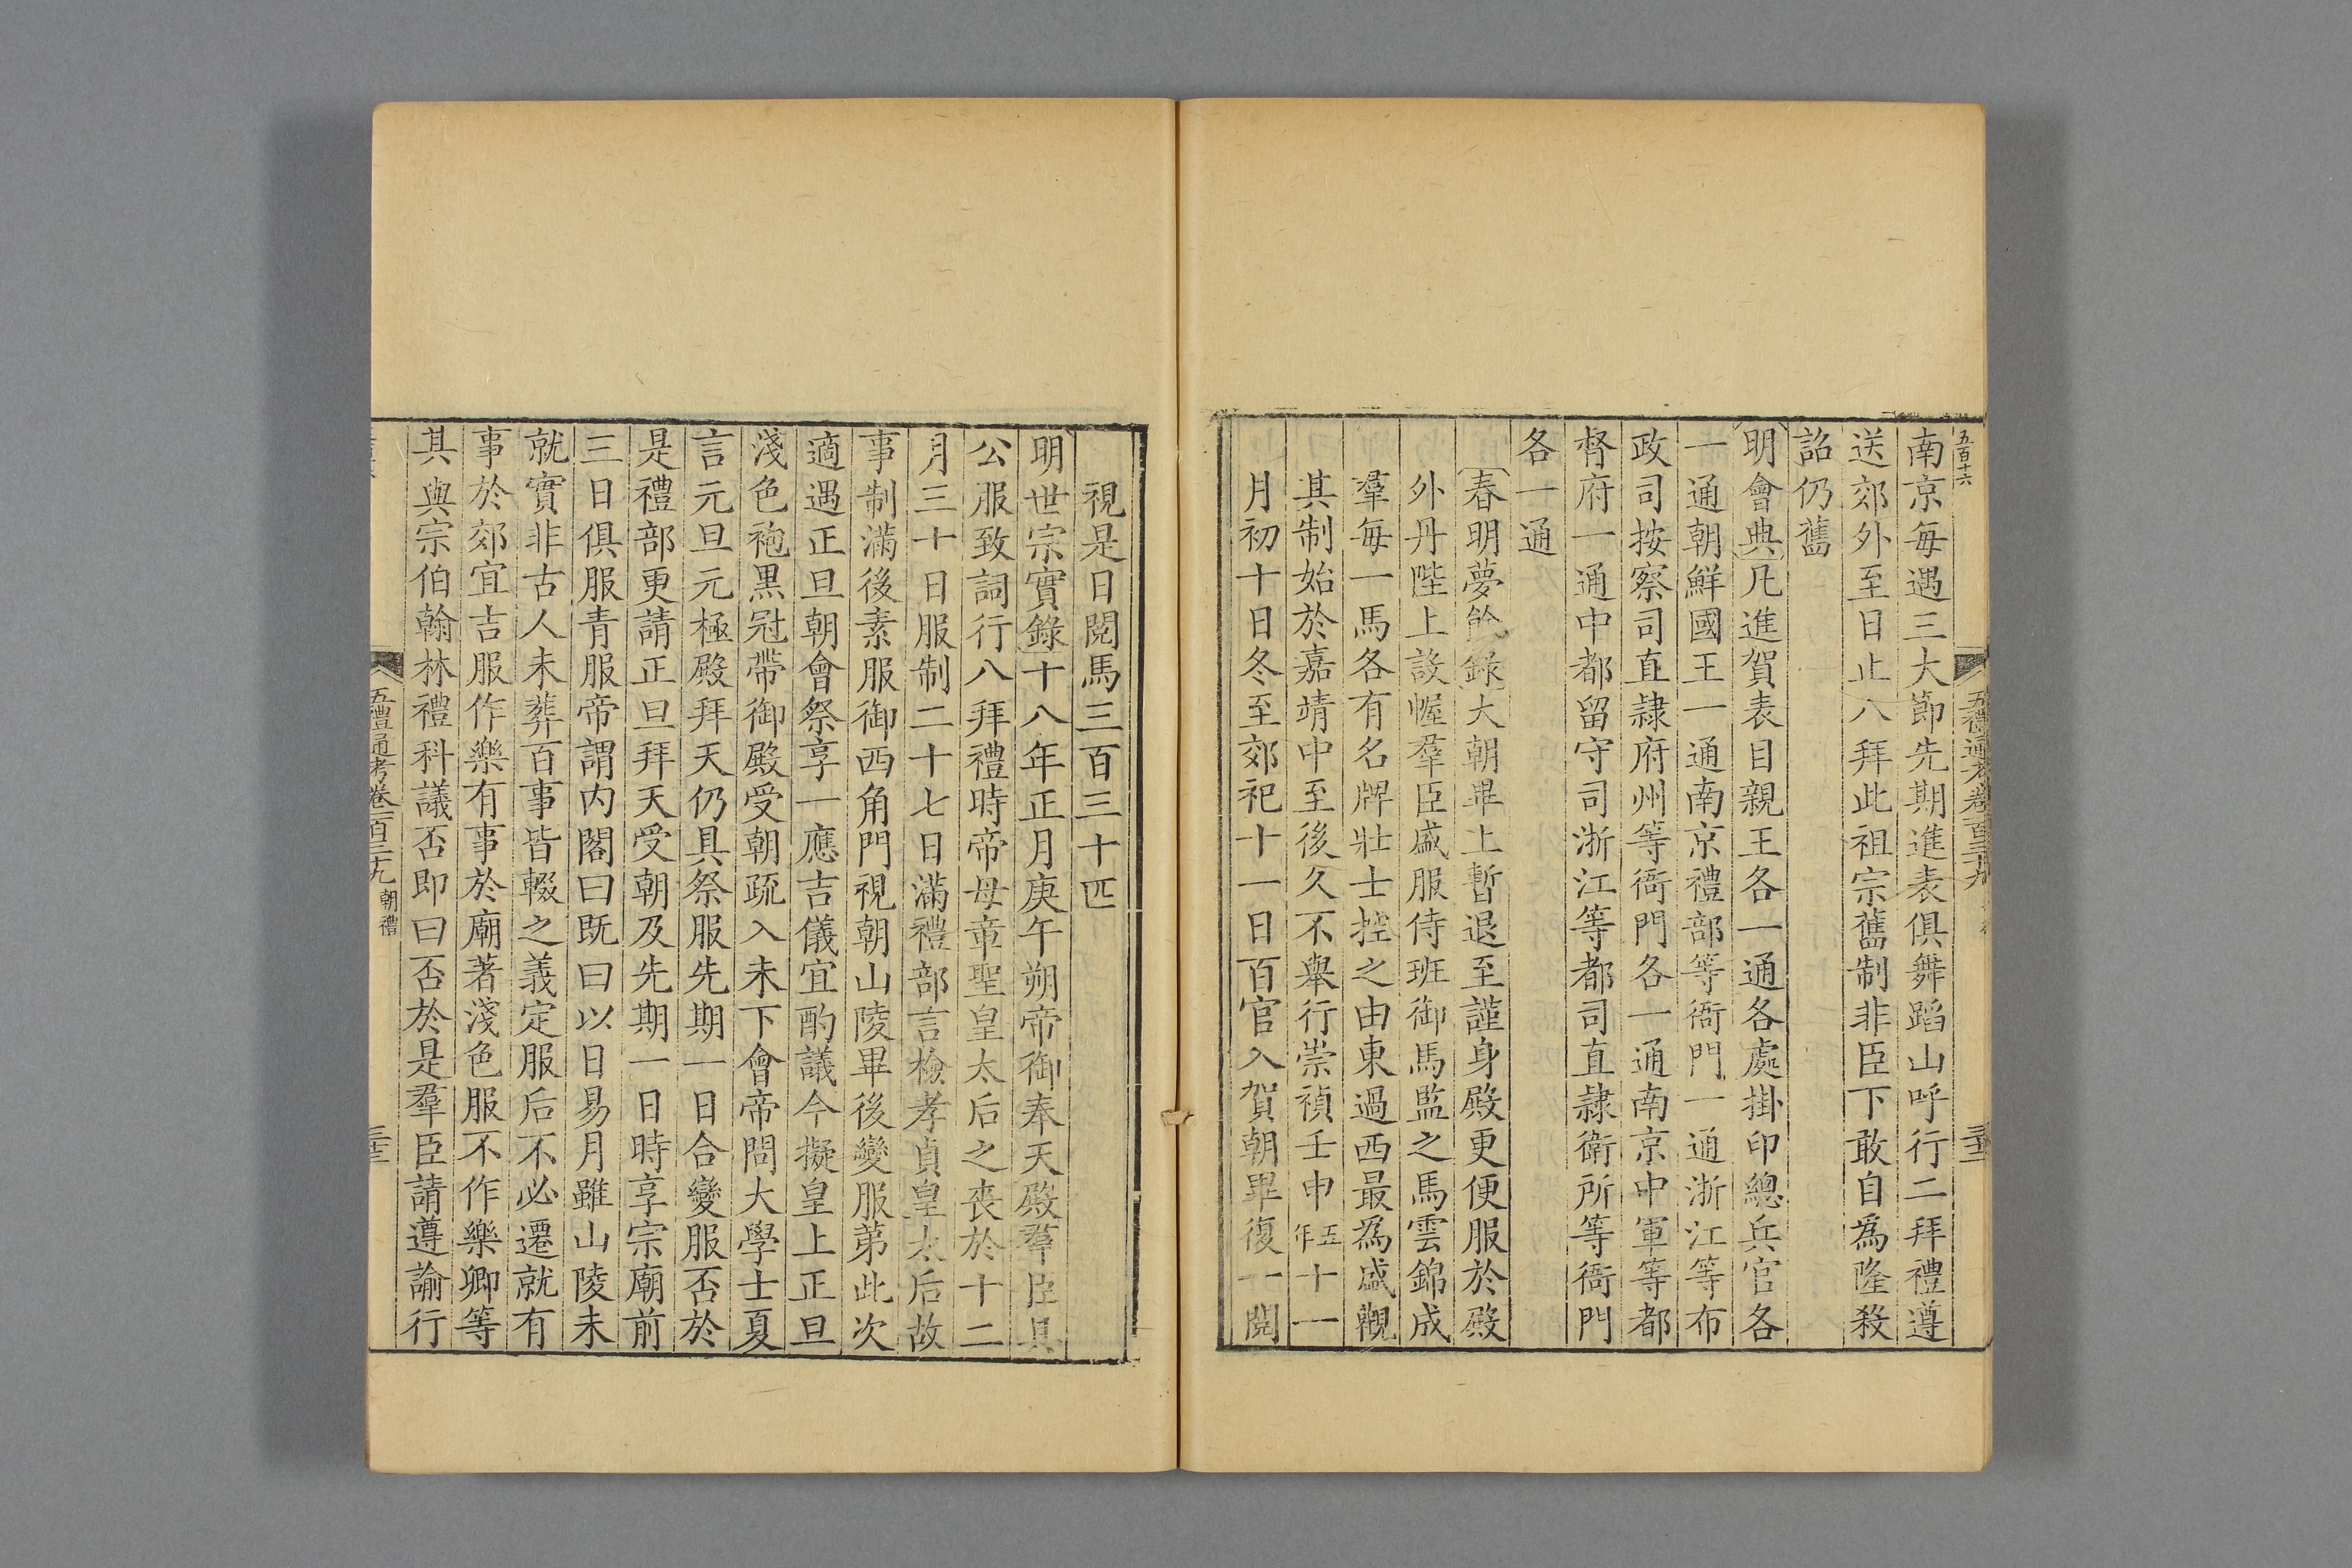 五百十六
五禮通考卷一百三十九
南京每遇三大節先期進表俱舞蹈山呼行二拜禮遵
送郊外至日止八拜此祖宗舊制非臣下敢自為隆殺
詔仍舊
明會典凡進賀表目親王各一通各處掛印總兵官各
一通朝鮮國王一通南京禮部等衙門一通浙江等布
政司按察司直隷府州等衙門各一通南京中軍等都
督府一通中都留守司浙江等都司直隷衛所等衙門
各一通
春明夢餘錄大朝畢上暫退至謹身殿更便服於殿
外丹陛上設幄羣臣盛服侍班御馬監之馬雲錦成
羣每一馬各有名牌壯士控之由東過西最為盛觀
其制始於嘉靖中至後久不舉行崇禎壬申五年十一
月初十日冬至郊祀十一日百官入賀朝畢復一閱
視是日閱馬三百三十匹
明世宗實錄十八年正月庚午朔帝御奉天殿羣臣具
公服致詞行八拜禮時帝母章聖皇太后之喪於十二
月三十日服制二十七日滿禮部言檢孝貞皇太后故
事制滿後素服御西角門視朝山陵畢後變服苐此次
適遇正旦朝會祭享一應吉儀宜酌議今擬皇上正旦
淺色袍黑冠帶御殿受朝疏入未下會帝問大學士夏
言元旦元極殿拜天仍具祭服先期一日合變服否於
是禮部更請正旦拜天受朝及先期一日時享宗廟前
三日俱服青服帝謂內閣曰既曰以日易月雖山陵未
就實非古人未葬百事皆輟之義定服后不必遷就有
事於郊宜吉服作樂有事於廟著淺色服不作樂卿等
其與宗伯翰林禮科議否即曰否於是羣臣請遵諭行
五禮通考卷一百三十九 朝禮